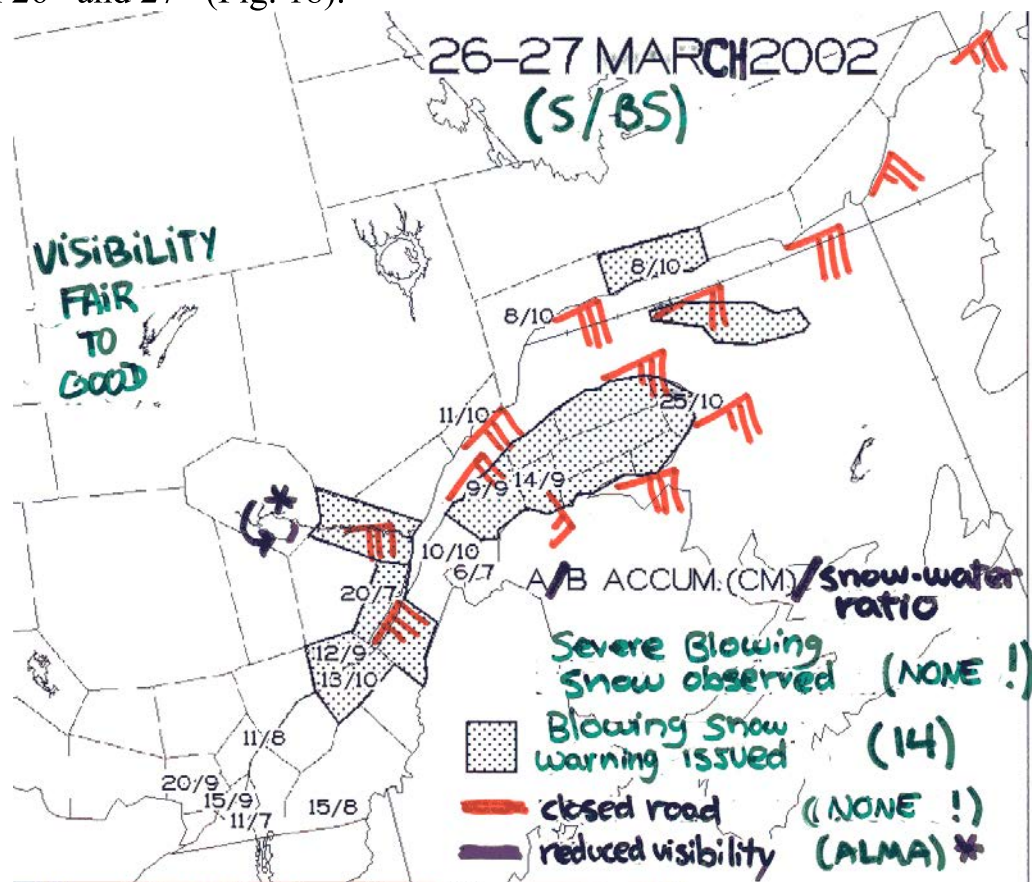 26 and 27 (Fig. 16).
26–27 MARCH 2002
(S/BS)
VISIBILITY
FAIR
TO
GOOD
8/10
8/10
11/10
25/10
9/9
14/9
10/10
6/7
20/7
12/9
13/10
11/8
20/9
15/9
11/7
15/8
A/B ACCUM.(CM)/snow-water
ratio
Severe Blowing
Snow observed (NONE !)
Blowing Snow
warning issued (14)
closed road (NONE !)
reduced visibility (ALMA) *